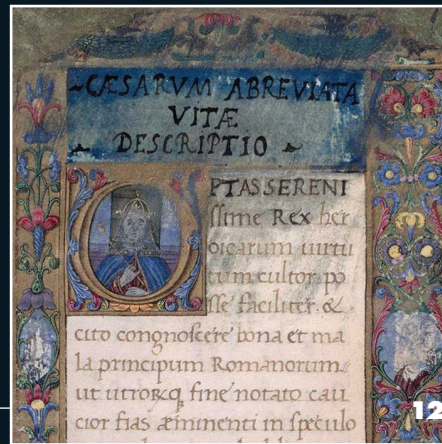 CÆSARVM ABREVIATA
VITÆ
DESCRIPTIO
OPTAS SERENI
ssime Rex her
oicarum uirtu
tum cultor po
sse faciliter. &
cito congnoscere bona et ma
la principum Romanorum.
ut utrorqꝫ fine notato cau
cior fias æminenti in speculo
12